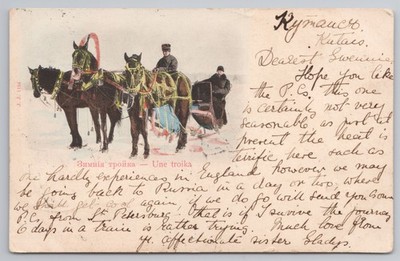 Кутаисъ
Kutais.
Dearest Swennie,
Hope you like
the P.C. this one
is certainly not very
seasonable, as just at
present the heat is
terrific here, such as
Зимнія тройка — Une troïka
one hardly experiences in England however we may
be going back to Russia in a day or two, where
we shall get cool again, if we do go will send you some
P.C. from St. Petersburg - that is if I survive the journey,
6 days in a train is rather trying. Much love from
yr. affectionate sister Gladys.